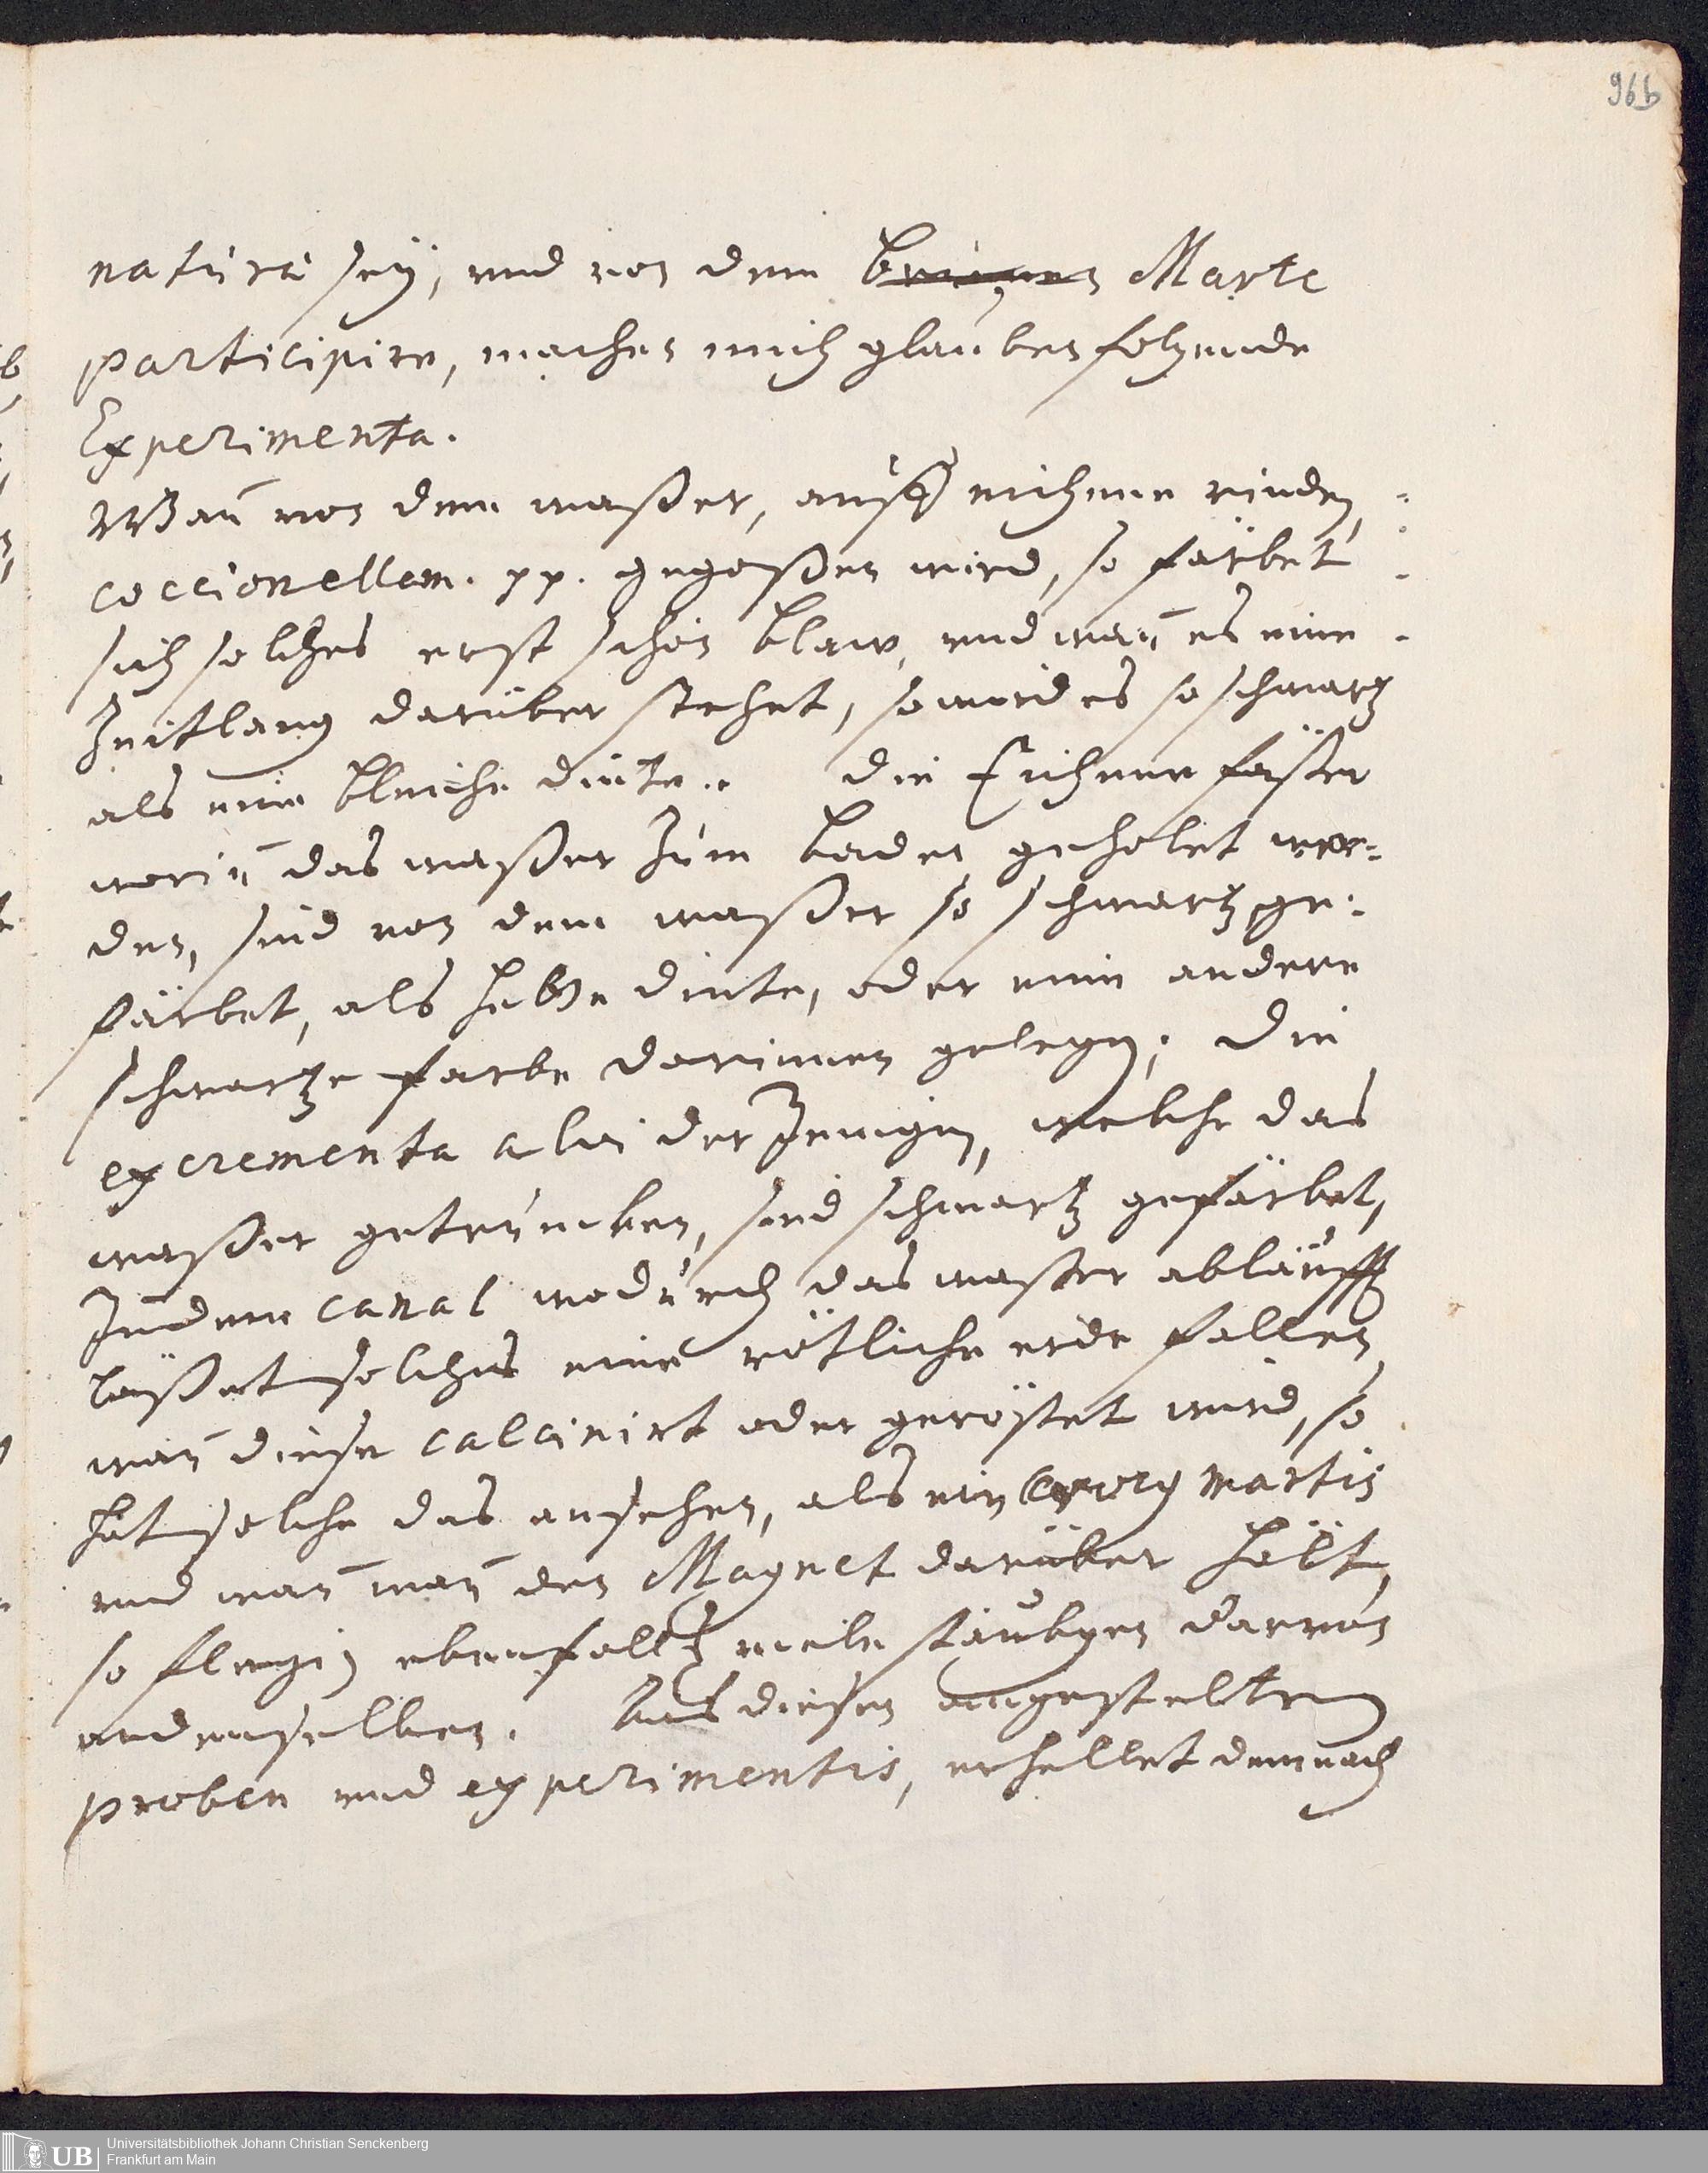 96b
naturâ seÿ, und von dem Marte
participire, machen mich glauben folgende
Experimenta.
Wan̄ von dem waßer, auff eichene rinden,
coccionellam. pp. gegoßen wird, so färbet
sich solches erst schön blaw, und wan̄ es eine
Zeitlang darüber stehet, so wird es so schwartz
als eine bleiche dinte. Die Eichene fäßer
worin̄ das waßer zum baden geholet wer-
den, sind von dem waßer so schwartz ge-
färbet, als hette dinte, oder eine andere
schwartze farbe darinnen gelegen; Die
excrementa alvi der Jenigen, welche das
waßer getruncken, sind schwartz gefärbet,
In dem canal wodurch das waßer abläufft
läßet solches eine rötliche erde fallen,
wan̄ diese calcinirt oder geröstet wird, so
hat solche das ansehen, als ein Croc9 martis
und wan̄ man̄ den Magnet darüber hält,
so fliegen ebenfaltz viele stäubgen darvon
an denselben. Aus diesen angestelten
proben und experimentis, erhellet demnach
UB
Universitätsbibliothek Johann Christian Senckenberg
Frankfurt am Main